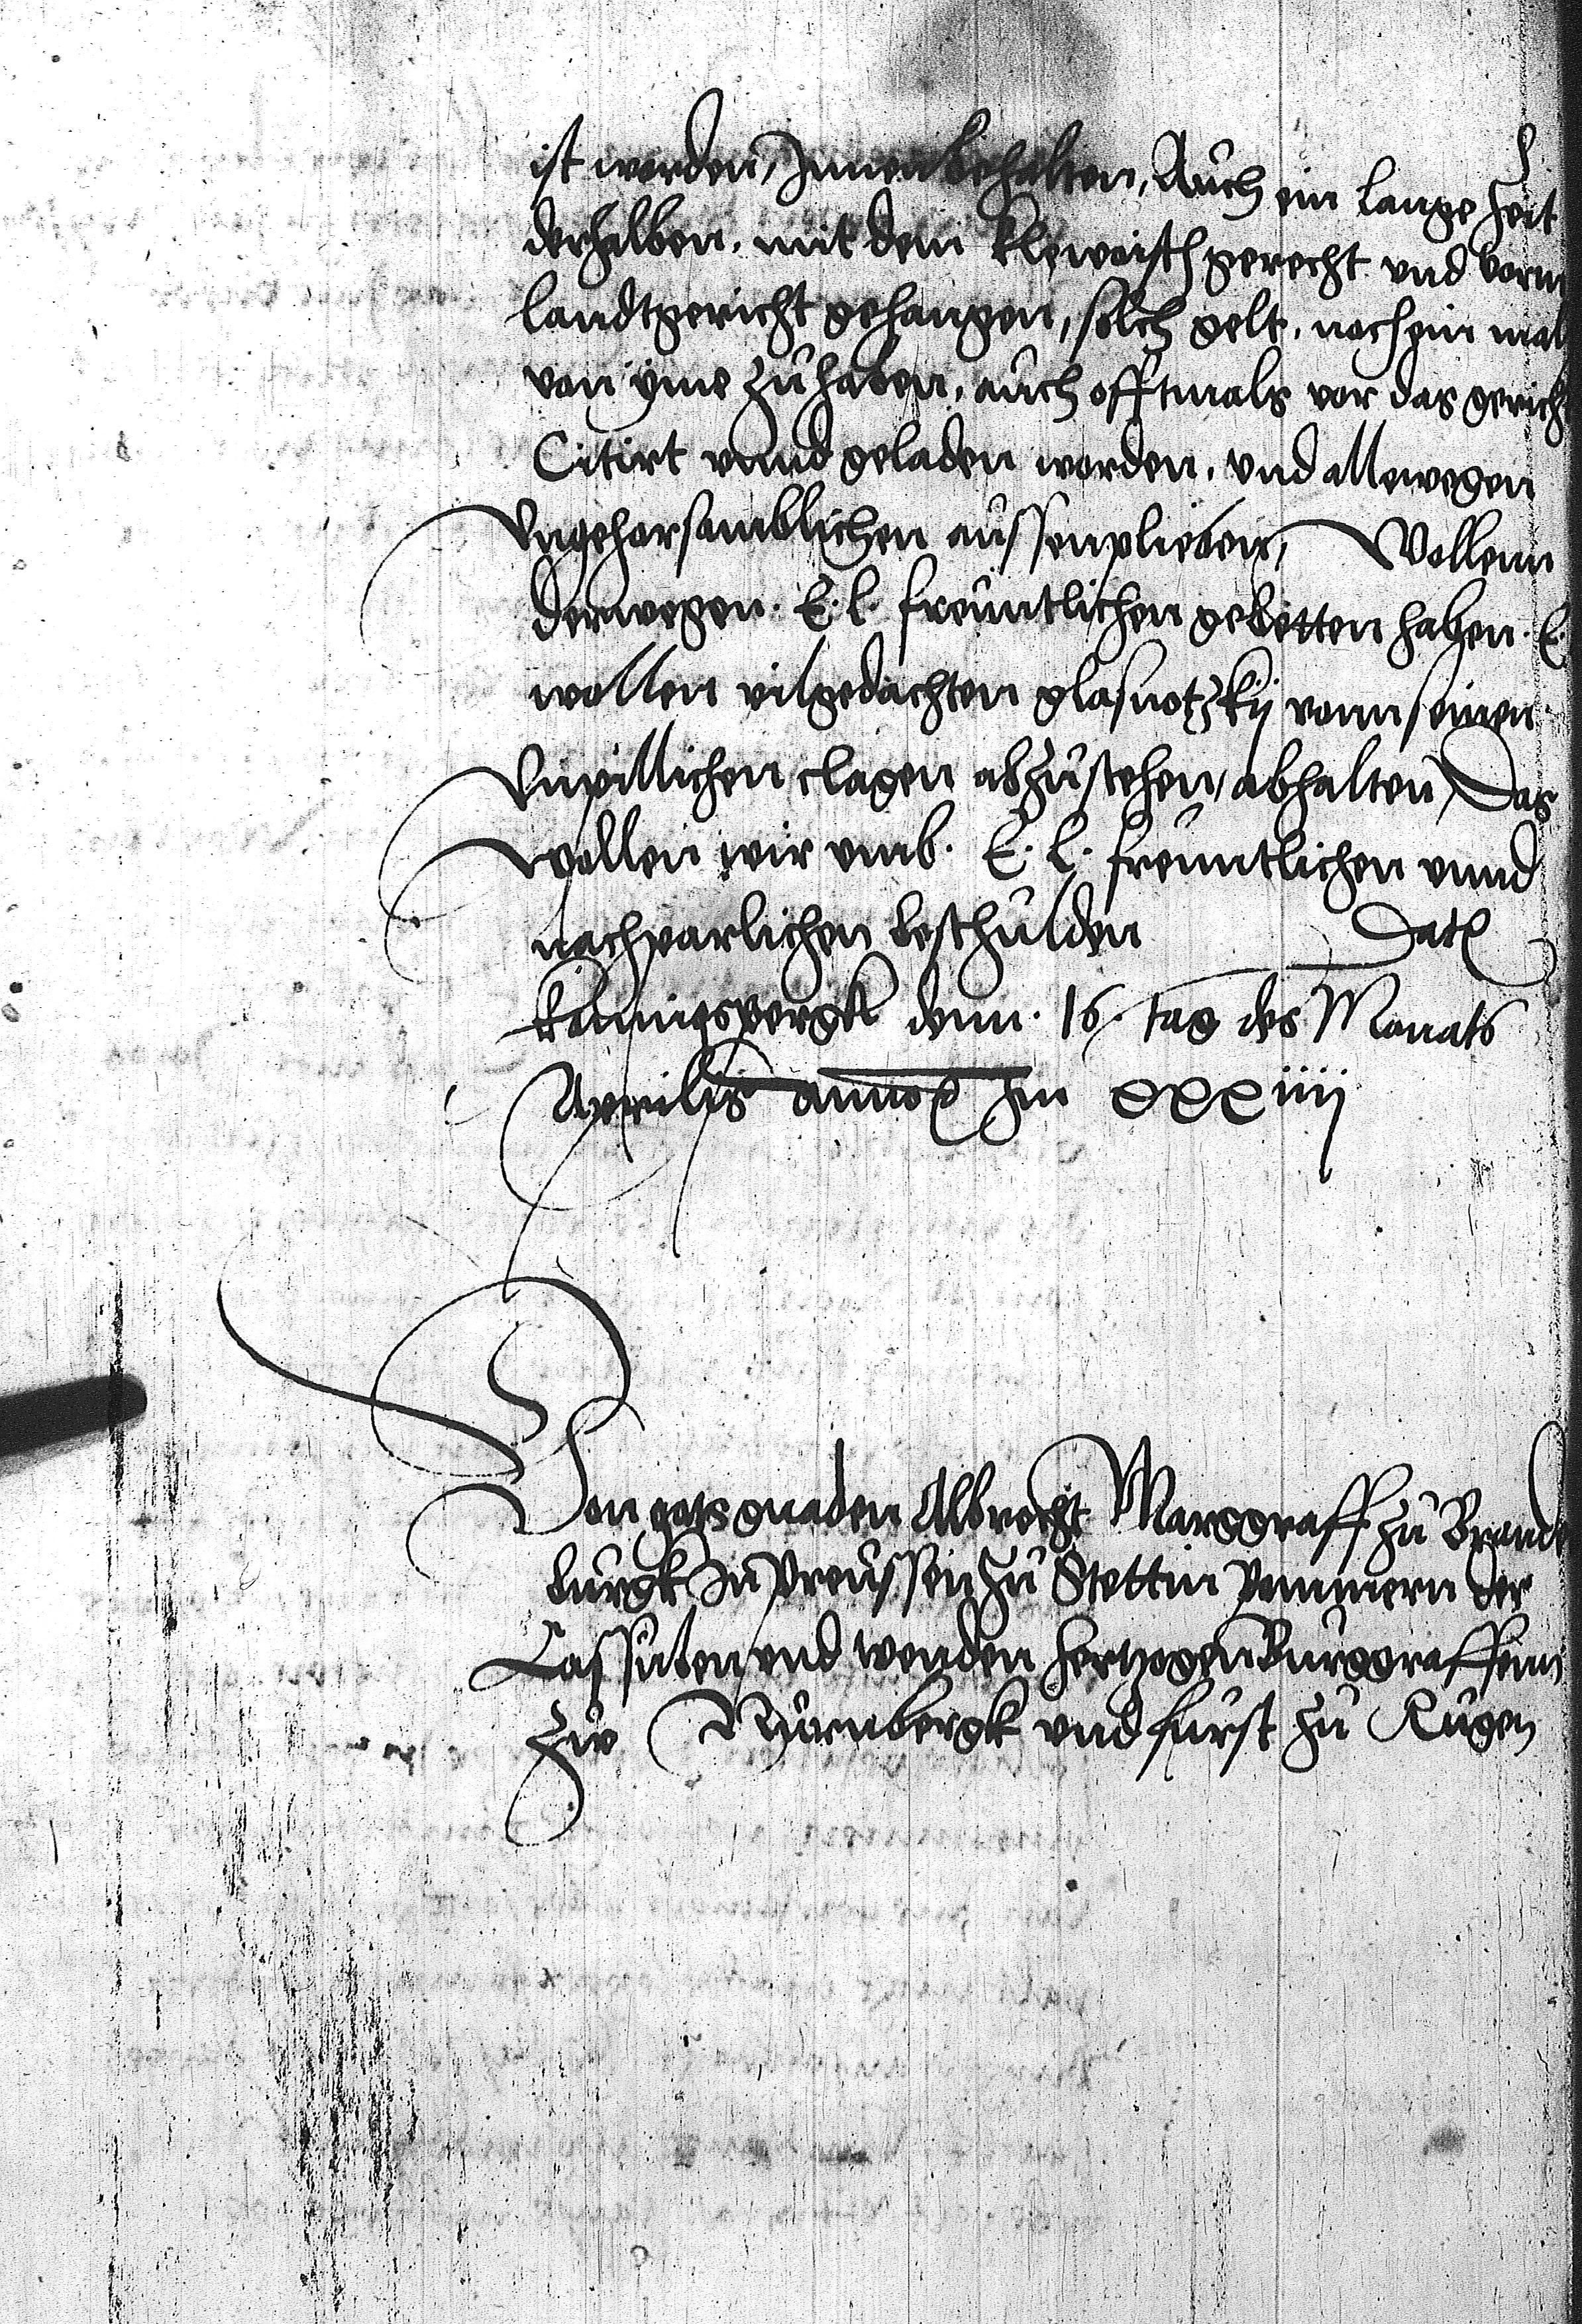 ist worden, Innen behalten, Auch ein lange Zeit
derhalben. mit dem gerecht und vorm
landtgericht gehangen, solch gelt. noch ein mal
von yme zu haben, auch offtmals vor das gericht
Citirt vnnd geladen worden. vnd allewegen
Vngehorsamblichen aussenplieben, Wollenn
derwegen. E. L. freuntlichen gebetten haben. E.
wollen vilgedachten glasnotzkij vonn seinen
Vnpillichen clagen abzustehen, abhalten, Das
wollen wir vmb. E. L. freuntlichen vnnd
nachparlichen beschulden Dat
konnigspergk denn. 16. tag des Monats
Aprilis anno im xxxiiii
Von gots gnaden Albrecht Marggraff zu Brande
burgk In Preussen zu Stettin Pommern der
Cassuben vnd wenden hertzogen Burggraffenn
zw Nurnbergk vnd furst zu Rugen